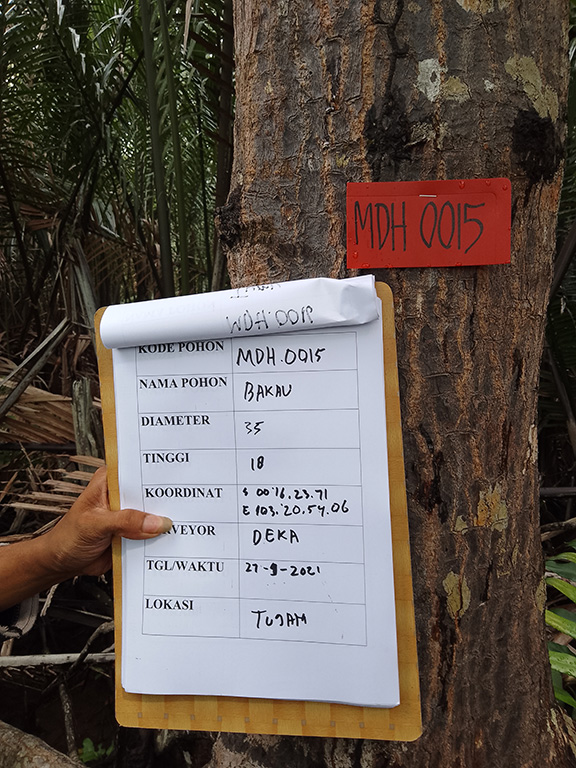 MDH 0015
MDH.0019
KODE POHON MDH.0015
NAMA POHON BAKAU
DIAMETER 35
TINGGI 18
KOORDINAT S 00°16.23.71
E 103°20.54.06
RVEYOR DEKA
TGL/WAKTU 27-9-2021
LOKASI TUJAH